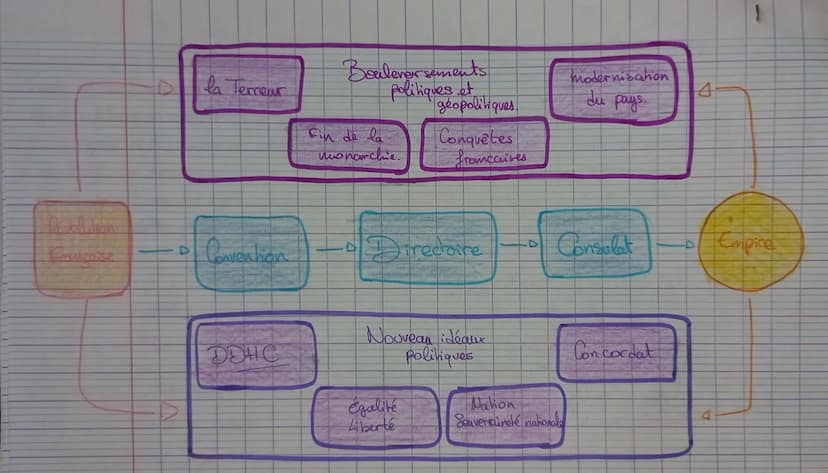 la Terreur
Bouleversements
politiques et
géopolitiques.
modernisation
du pays.
Fin de la
monarchie.
Conquêtes
francaires
Révolution
Française
Convention
Directoire
Consulat
Empire
DDHC
Nouveau idéaux
politiques
Concordat
Égalité
Liberté
Nation
Souveraineté nationale